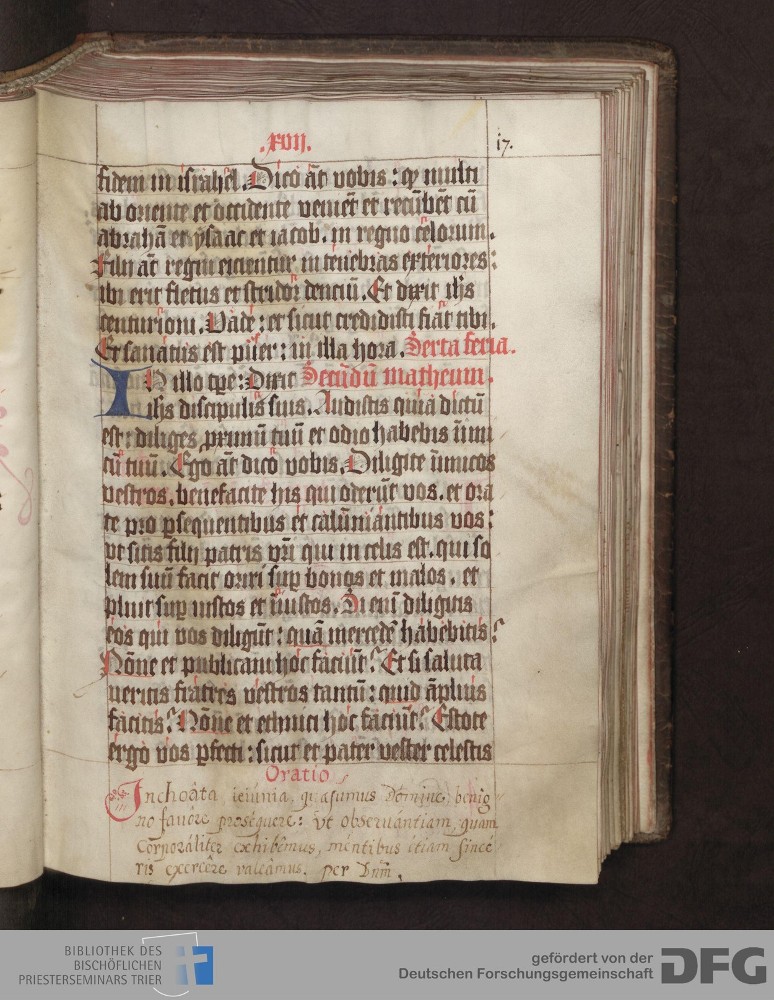 .xvij.
17.
fidem in israhel. Dico aūt vobis: qꝫ multi
ab oriente et occidente venient et recūbēt cū
abrahā et ysaac et iacob. in regno celorum.
Filij aūt regni eicientur in tenebras exteriores:
ibi erit fletus et stridor dentiū. Et dixit ihs
centurioni. Vade: et sicut credidisti fiat tibi.
Et sanatus est puer: in illa hora. Sexta feria.
IN illo tp̄e: Dixit Secūdū matheum.
ihs discipulis suis. Audistis quia dictū
est: diliges proximū tuū et odio habebis inimi
cū tuū. Ego aūt dico vobis. Diligite inimicos
vestros. benefacite his qui oderūt vos. et ora
te pro ꝑsequentibus et calūniantibus vos:
vt sitis filij patris vr̄i qui in celis est. qui so
lem suū facit oriri suꝑ bonos et malos. et
pluit suꝑ iustos et iniustos. Si enī diligitis
eos qui vos diligūt: quā mercedē habebitis?
Nōne et publicani hoc faciūt? Et si saluta
ueritis fratres vestros tantū: quid āplius
facitis? Nōne et ethnici hoc faciūt? Estote
ergo vos ꝑfecti: sicut et pater vester celestis
Oratio
Inchoata ieiunia, quæsumus Domine, benig
no favore prosequere: vt observantiam, quam
corporaliter exhibemus, mentibus etiam sincé
ris exercere valeámus. per Dnm̄.
BIBLIOTHEK DES
BISCHÖFLICHEN
PRIESTERSEMINARS TRIER
gefördert von der
Deutschen Forschungsgemeinschaft
DFG